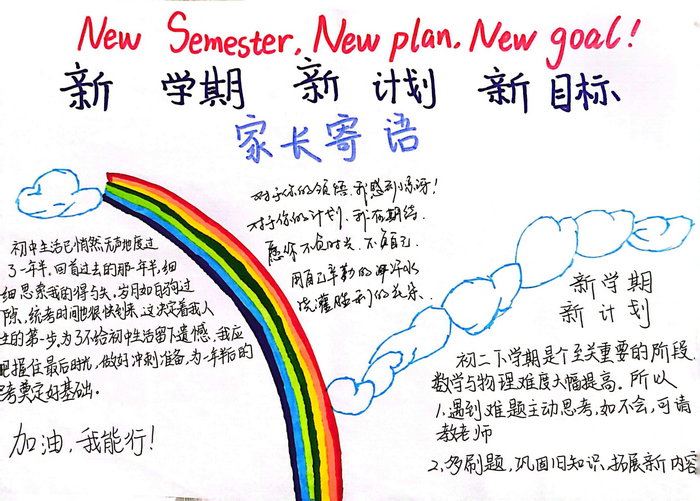 New Semester, New plan, New goal!
新 学期 新 计划 新 目标
家长寄语
对于你的领悟,我感到惊讶!
对于你的计划,我有期待.
愿你不负时光,不负自己.
用自己辛勤的汗水
浇灌胜利的花朵.
初中生活已悄然无声地度过
了一年半,回首过去的那一年半,细
细思索我的得与失,岁月如白驹过
隙,统考时间也很快到来,这决定着我人
生的第一步,为了不给初中生活留下遗憾,我应
把握住最后时光,做好冲刺准备,为一年半后的
考奠定好基础.
加油,我能行!
新学期
新计划
初二下学期是个至关重要的阶段.
数学与物理难度大幅提高.所以
1.遇到难题主动思考,如不会,可请
教老师
2.多刷题,巩固旧知识,拓展新内容